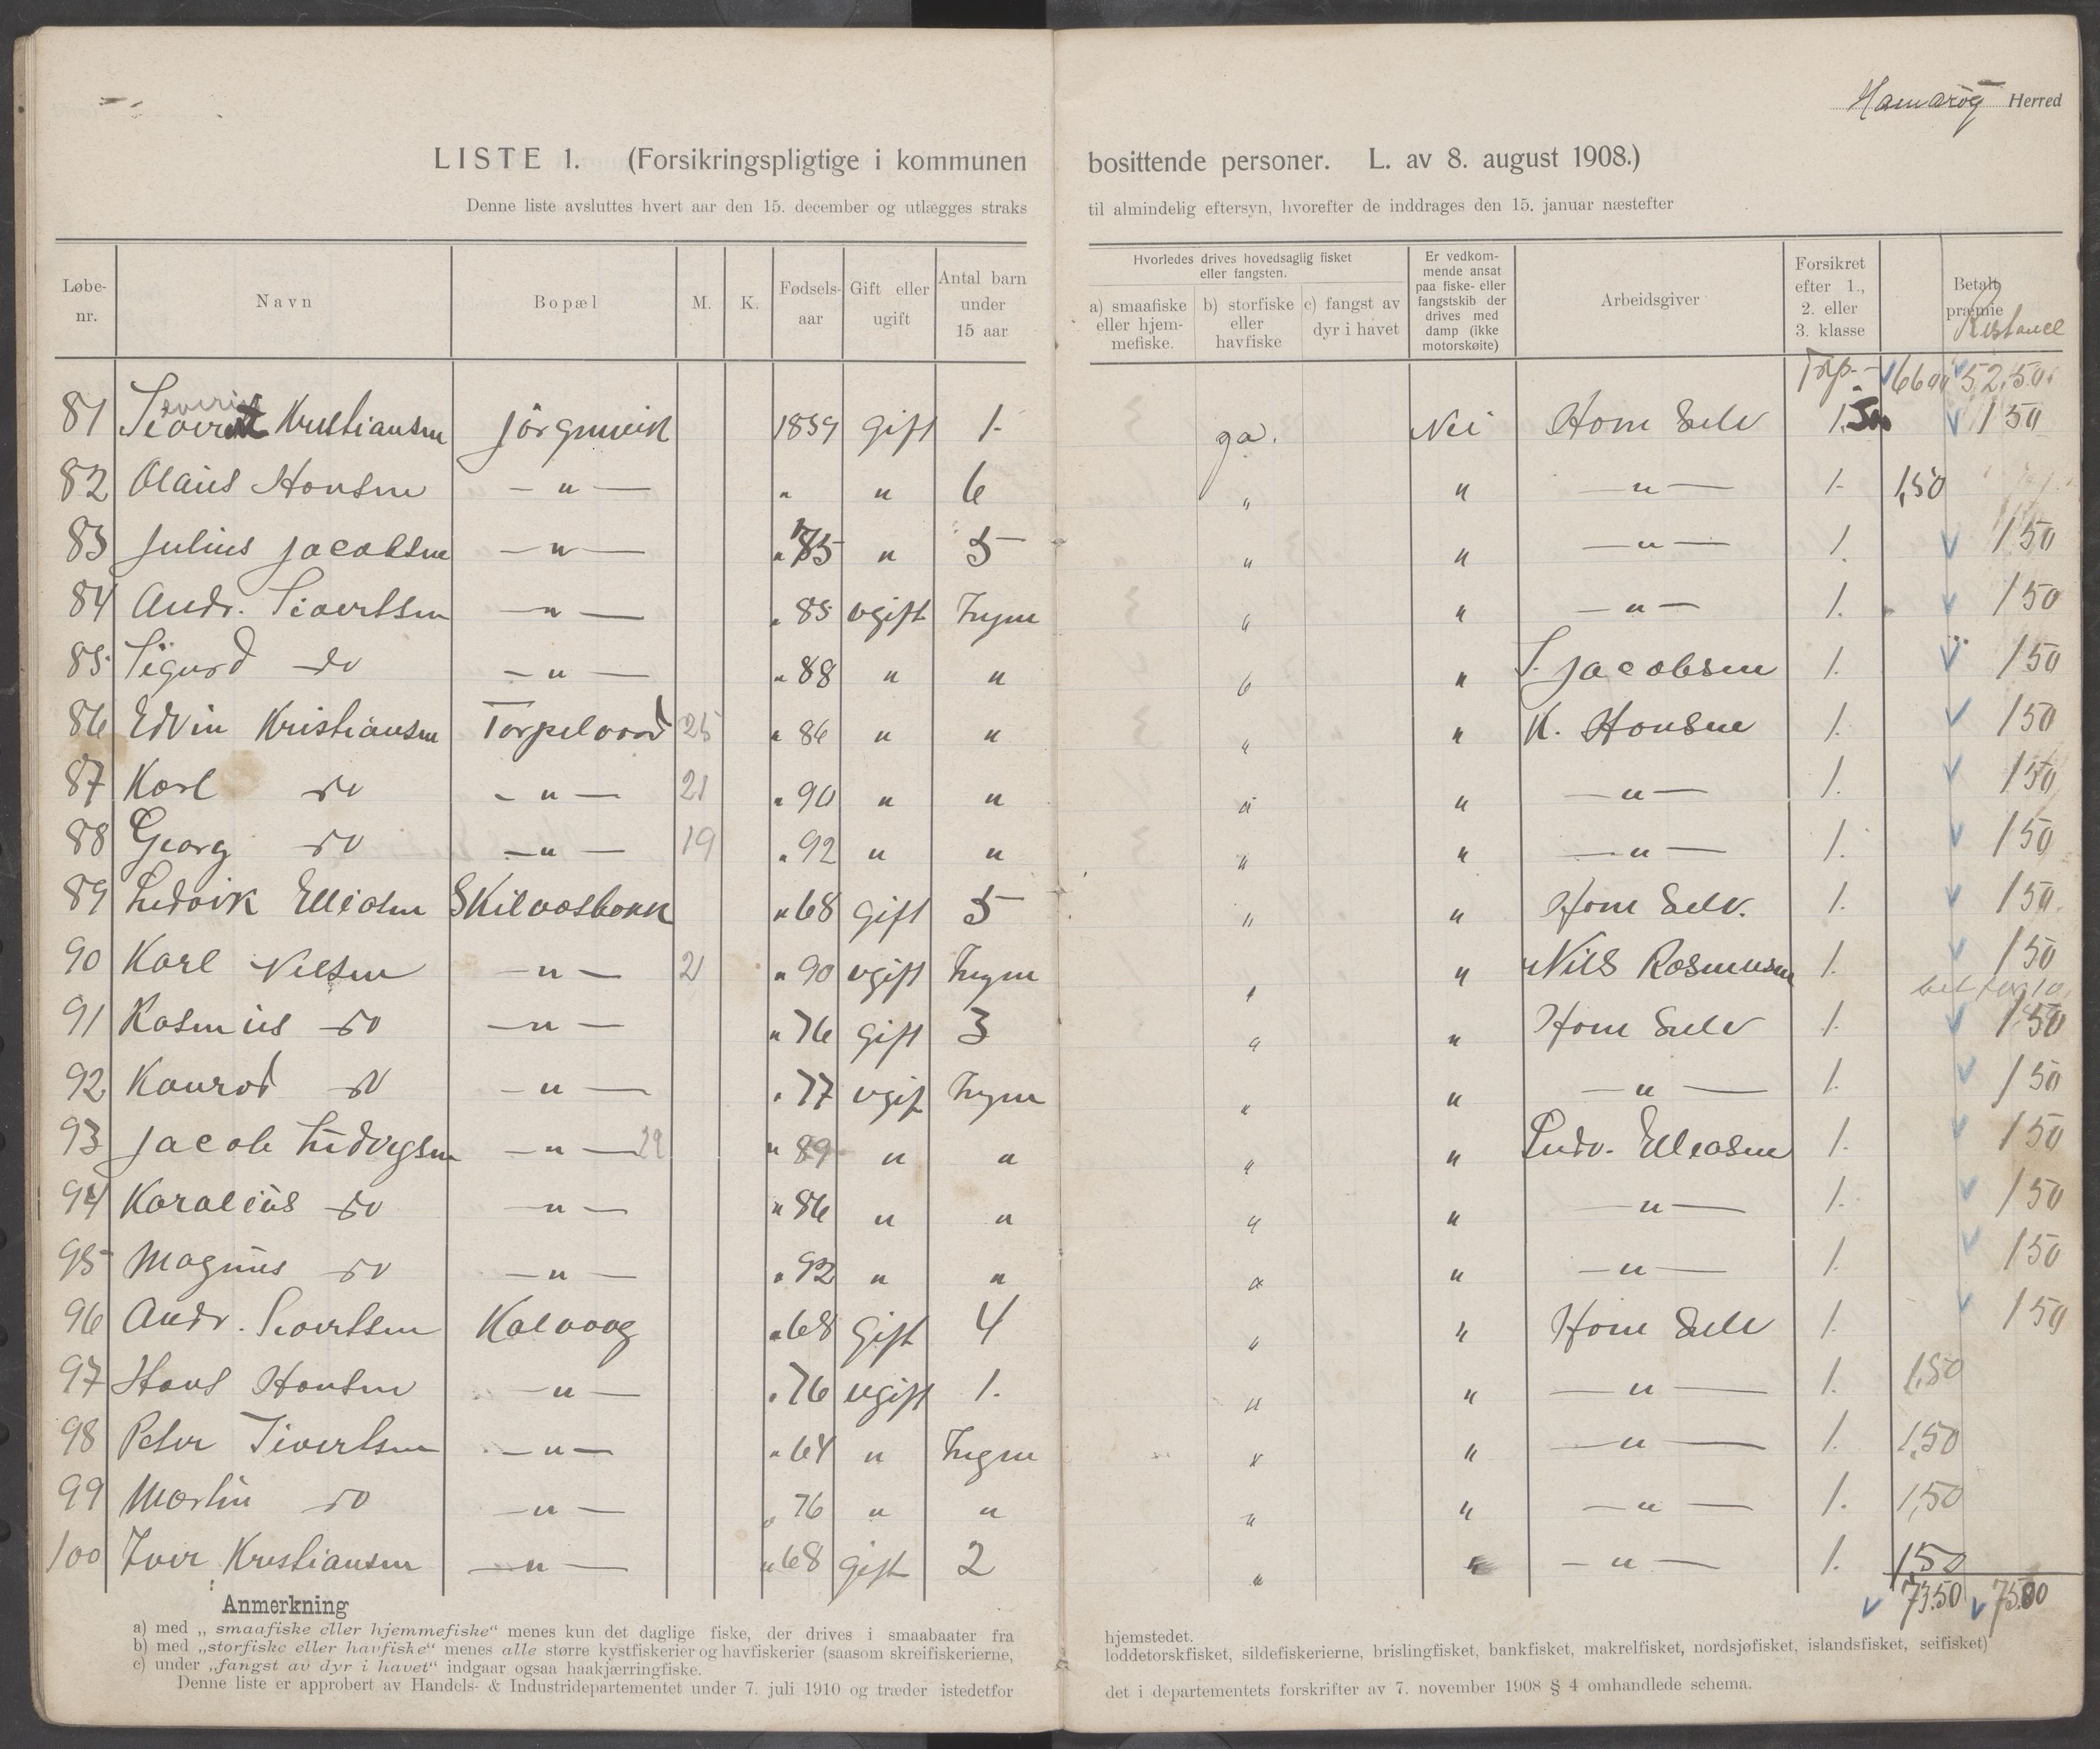 Hamarøy Herred
LISTE 1. (Forsikringspligtige i kommunen bosittende personer. L. av 8. august 1908.)
Denne liste avsluttes hvert aar den 15. december og utlægges straks til almindelig eftersyn, hvorefter de inddrages den 15. januar næstefter
Løbe-nr. Navn Bopæl M. K. Fødsels-aar Gift eller ugift Antal barn under 15 aar Hvorledes drives hovedsaglig fisket eller fangsten. a) smaafiske eller hjemmefiske. b) storfiske eller havfiske c) fangst av dyr i havet Er vedkommende ansat paa fiske- eller fangstskib der drives med damp (ikke motorskøite) Arbeidsgiver Forsikret efter 1., 2. eller 3. klasse Betalt præmie Restance
Trp. 66 00 52,50
81 Sivert Kristiansen 1859 gift 1. ja. Nei Ham Selv 1. 1 50
82 Olaus Hansen — " — " " 6 " " — " — 1. 1,50
83 Julius Jacobsen — " — " 75 " 5 " " — " — 1. 1 50
84 Andr. Sivertsen — " — " 85 ugift Ingen " " — " — 1. 1 50
85 Sigurd do — " — " 88 " " " " S. Jacobsen 1. 1 50
86 Edvin Kristiansen 25 " 86 " " " " K. Hansen 1. 1 50
87 Karl do — " — 21 " 90 " " " " — " — 1. 1 50
88 Georg do — " — 19 " 92 " " " " — " — 1. 1 50
89 Ludvik Elliasen " 68 gift 5 " " Ham Selv. 1. 1 50
90 Karl Nilsen — " — 21 " 90 ugift Ingen " " Nils Rasmusen 1. 1 50
91 Rasmus do — " — " 76 gift 3 " " Ham Selv 1. 1 50
92 Konrad do — " — " 77 ugift Ingen " " — " — 1. 1 50
93 Jacob Ludvigsen — " — 22 " 89 " " " " Ludv. Elleasen 1. 1 50
94 Karalius do — " — " 86 " " " " — " — 1. 1 50
95 Magnus do — " — " 92 " " " " — " — 1. 1 50
96 Andr. Sivertsen Kalvaag " 68 gift 4 " " Ham Selv 1. 1 50
97 Hans Hansen — " — " 76 ugift 1. " " — " — 1. 1,50
98 Peter Sivertsen — " — " 64 " Ingen " " — " — 1. 1,50
99 Martin do — " — " 76 " " " " — " — 1. 1,50
100 Iver Kristiansen — " — " 68 gift 2 " " — " — 1. 1,50
73.50 75.00
Anmerkning
a) med „smaafiske eller hjemmefiske“ menes kun det daglige fiske, der drives i smaabaater fra hjemstedet.
b) med „storfiske eller havfiske“ menes alle større kystfiskerier og havfiskerier (saasom skreifiskerierne, loddetorskfisket, sildefiskerierne, brislingfisket, bankfisket, makrelfisket, nordsjøfisket, islandsfisket, seifisket)
c) under „fangst av dyr i havet“ indgaar ogsaa haakjærringfiske.
Denne liste er approbert av Handels- & Industridepartementet under 7. juli 1910 og træder istedetfor det i departementets forskrifter av 7. november 1908 § 4 omhandlede schema.